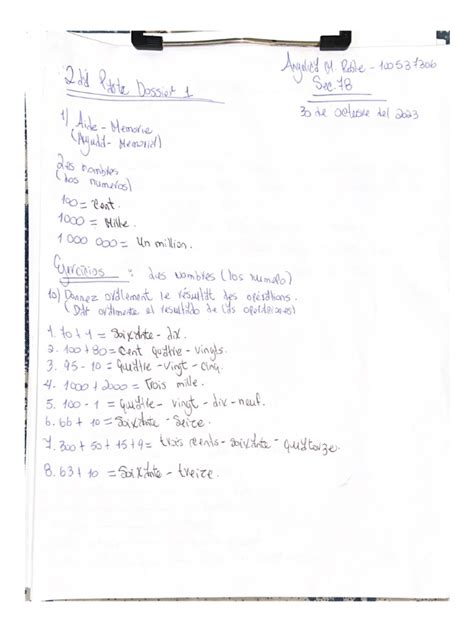 2da Parte Dossier 1
Angelica M. Pole - 100537306
Sec. 78
30 de octubre del 2023
1) Aide - Memorie
(Ayuda - Memoria)
Les nombres
(Los numeros)
100 = Cent.
1000 = Mille.
1 000 000 = Un million.
Ejercicios : Les Nombres (los numero)
10) Donnez oralement le résultat des opérations.
(Dar oralmente el resultado de las operaciones)
1. 70 + 1 = Soixante - dix.
2. 100 + 80 = Cent quatre - vingts.
3. 95 - 10 = Quatre - vingt - cinq.
4. 1000 + 2000 = Trois mille.
5. 100 - 1 = Quatre - vingt - dix - neuf.
6. 66 + 10 = Soixante - Seize.
7. 300 + 50 + 15 + 9 = trois cents - soixante - quatorze.
8. 63 + 10 = Soixante - treize.